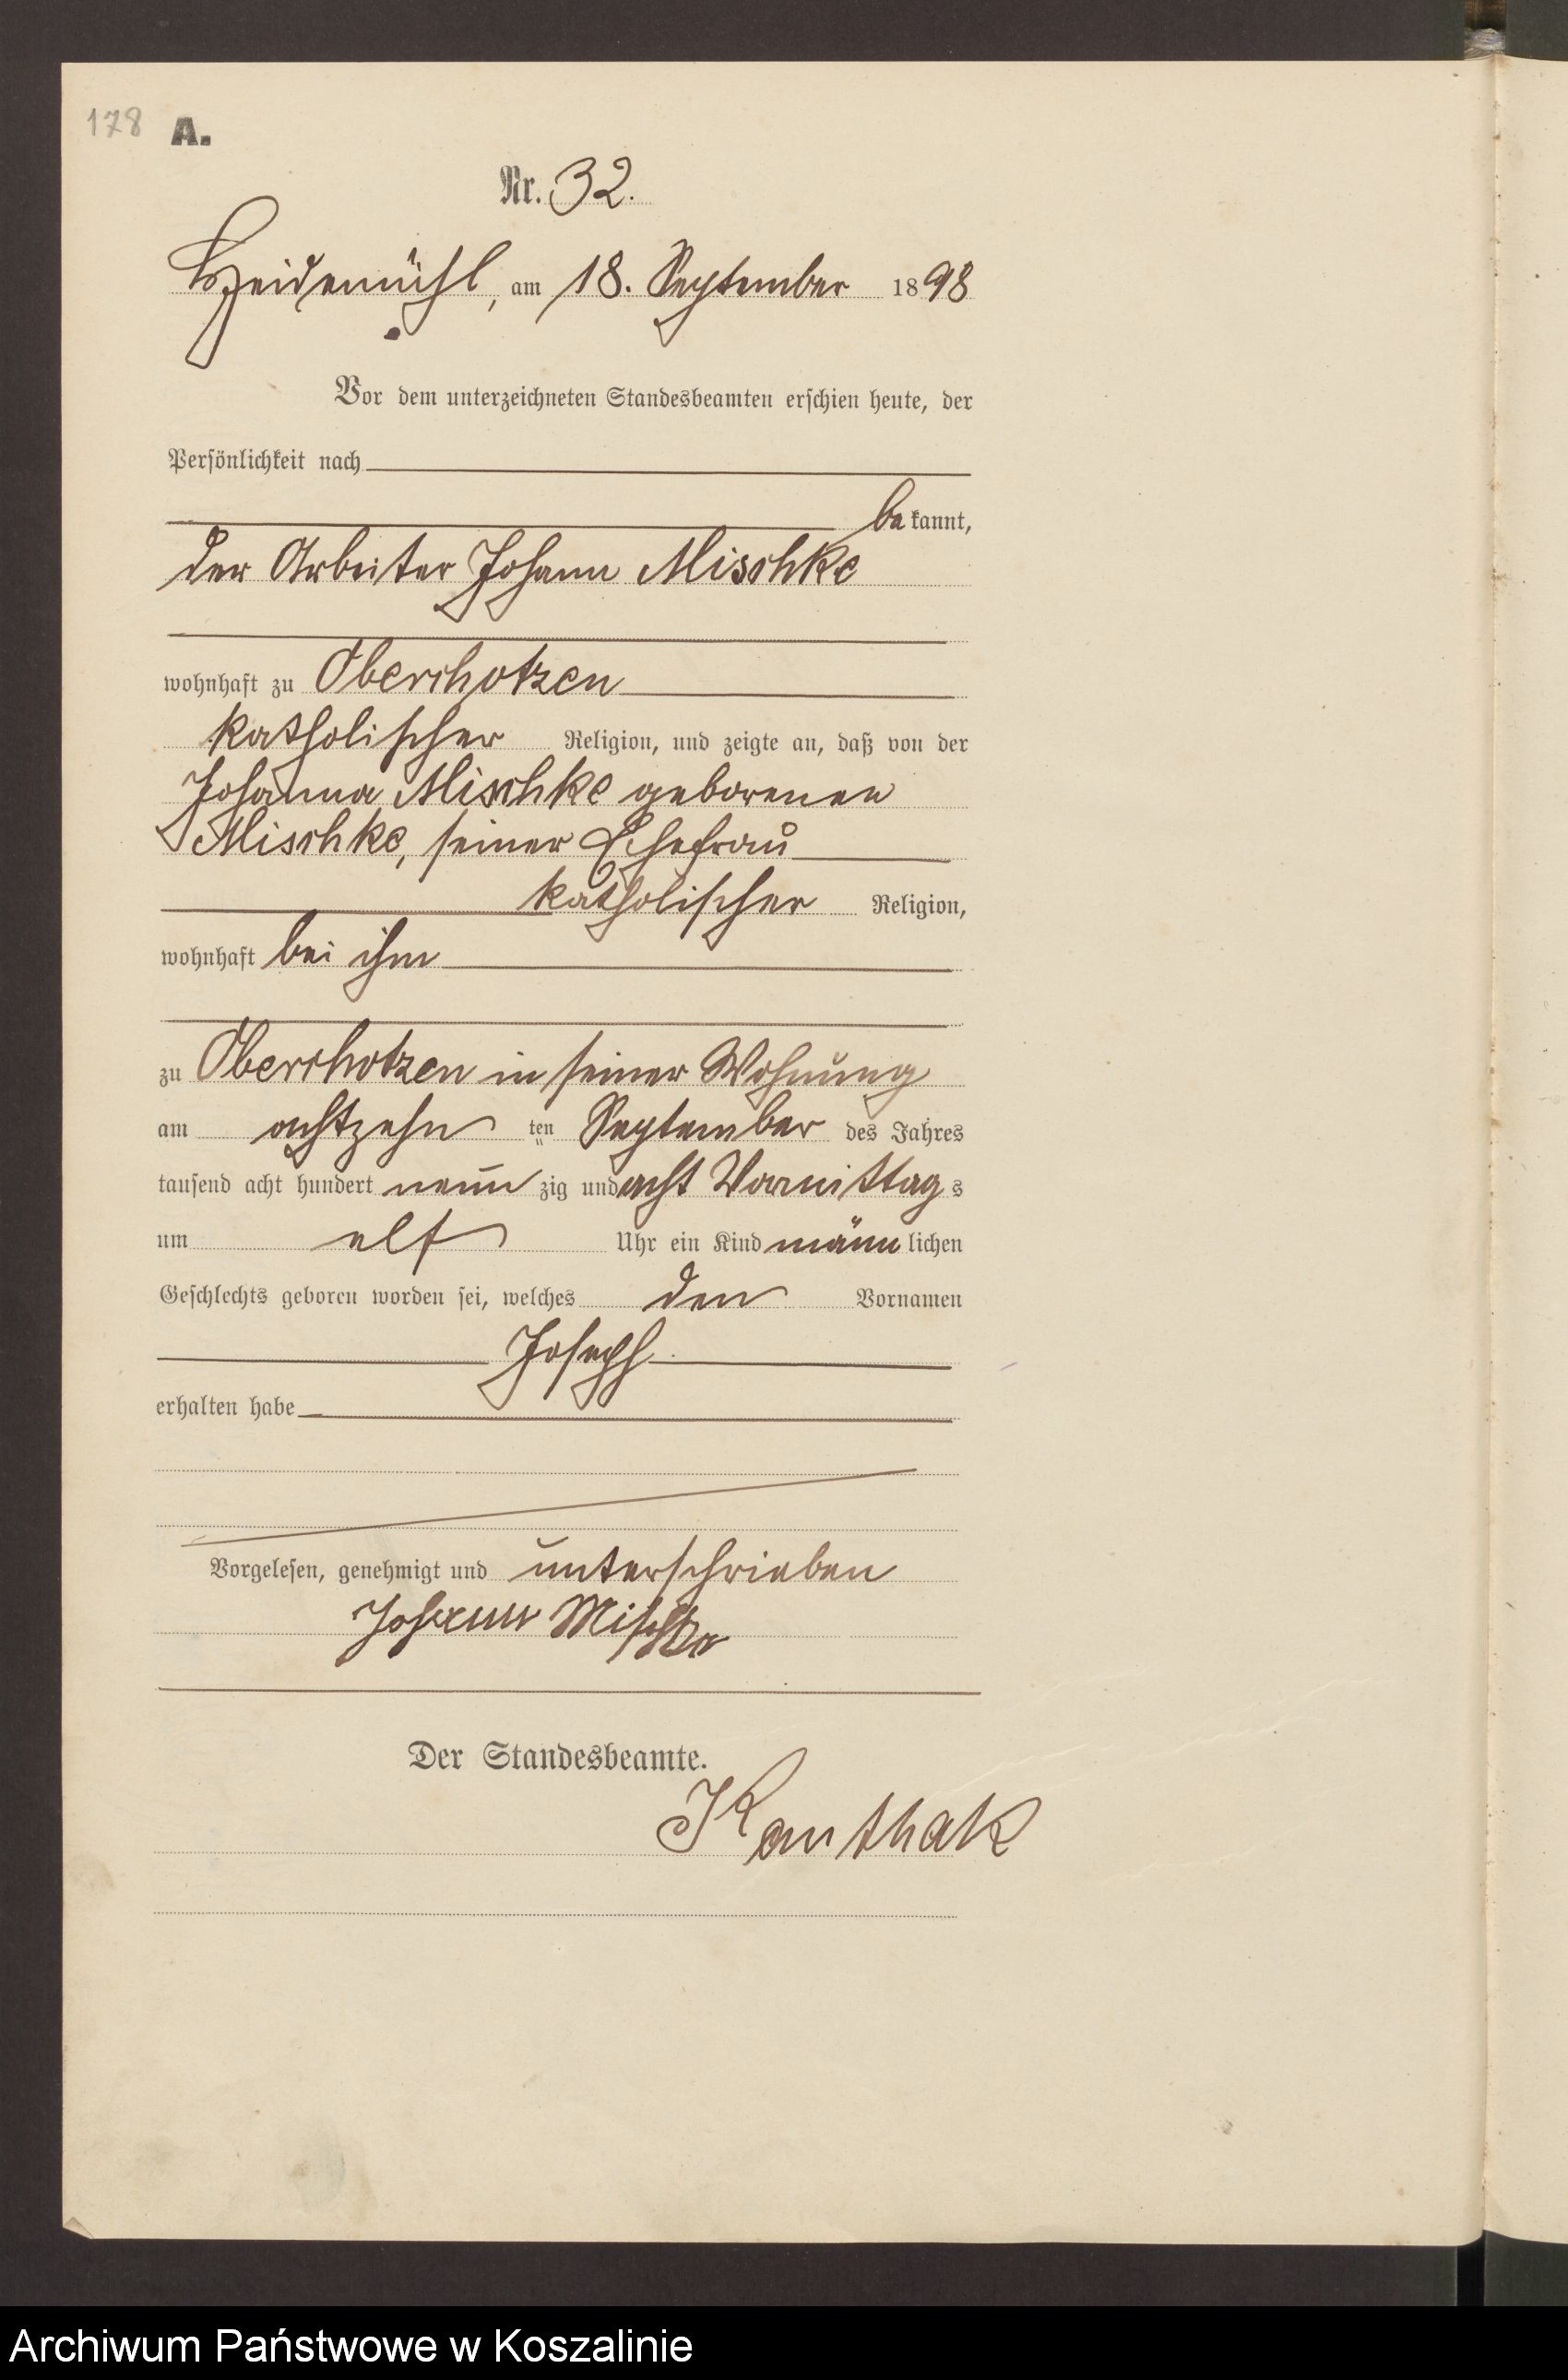 178 A.
Nr. 32.
Heidemühl, am 18. September 1898
Vor dem unterzeichneten Standesbeamten erschien heute, der
Persönlichkeit nach
bekannt,
der Arbeiter Johann Mischke
wohnhaft zu Oberchotzen
katholischer Religion, und zeigte an, daß von der
Johanna Mischke geborenen
Mischke, seiner Ehefrau
katholischer Religion,
wohnhaft bei ihm
zu Oberchotzen in seiner Wohnung
am achtzehn ten September des Jahres
tausend acht hundert neun zig und acht Vormittags
um elf Uhr ein Kind männlichen
Geschlechts geboren worden sei, welches den Vornamen
Joseph
erhalten habe
Vorgelesen, genehmigt und unterschrieben
Johann Mischke
Der Standesbeamte.
Kanthak
Archiwum Państwowe w Koszalinie